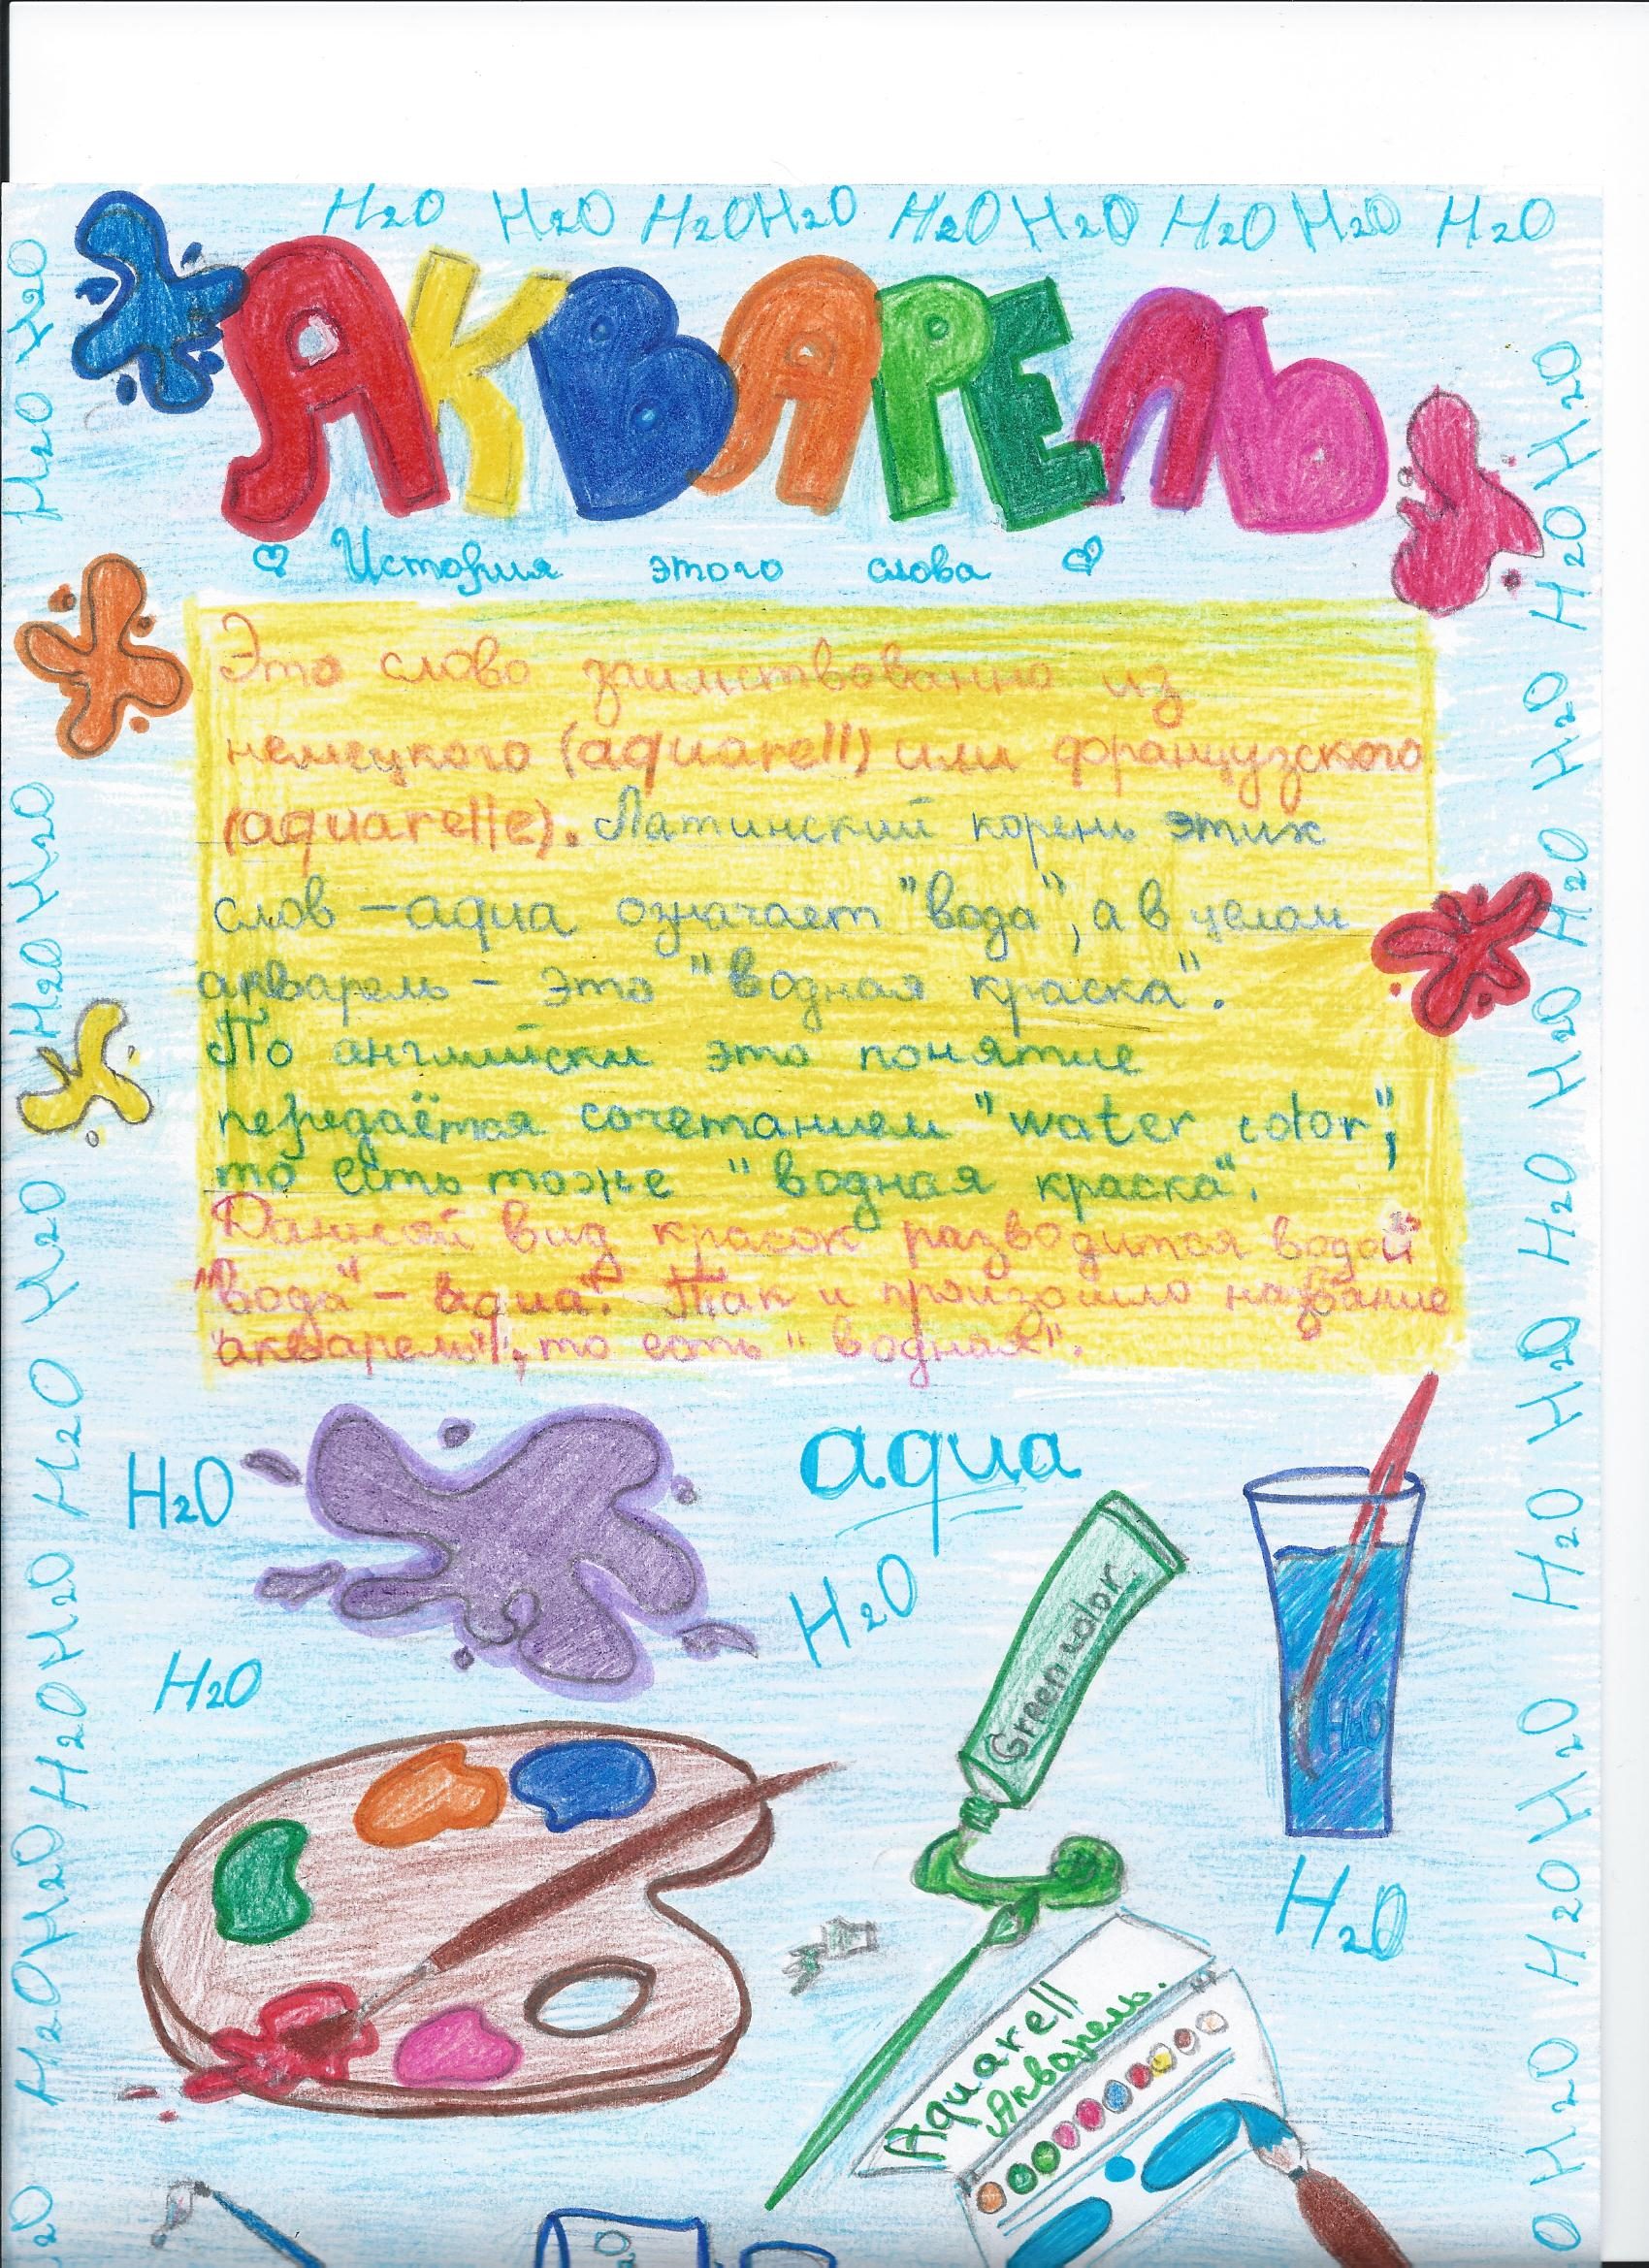 H2O H2O H2O H2O H2O H2O H2O H2O H2O
АКВАРЕЛЬ
История этого слова
Это слово заимствованно из
немецкого (aquarell) или французского
(aquarelle). Латинский корень этих
слов – aqua означает "вода", а в целом
акварель – это "водная краска".
По английски это понятие
передаётся сочетанием "water color",
то есть тоже "водная краска".
Данный вид красок разводится водой
"вода" – aqua". Так и произошло название
"акварель", то есть "водная".
H2O
aqua
H2O
H2O
Green color
H2O
H2O
Aquarell
Акварель.